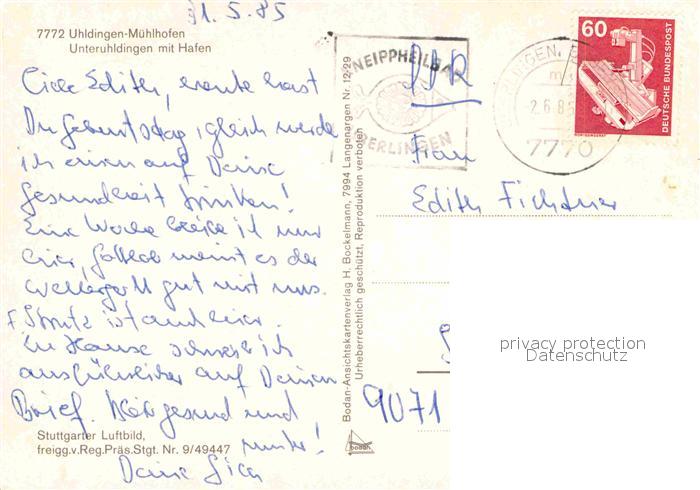 31.5.85
7772 Uhldingen-Mühlhofen
Unteruhldingen mit Hafen
Liebe Edith, heute hast
Du Geburtstag, gleich werde
ich einen auf Deine
Gesundheit trinken!
Eine Woche bleibe ich nun
hier, Gottlob meint es der
Wettergott gut mit uns.
ist auch hier.
Zu Hause schreibe ich
ausführlicher auf Deinen
Brief. Bleib gesund und
munter!
Deine
Stuttgarter Luftbild,
freigg.v.Reg.Präs.Stgt. Nr. 9/49447
Bodan-Ansichtskartenverlag H. Bockelmann, 7994 Langenargen Nr. 12/29
Urheberrechtlich geschützt, Reproduktion verboten
bodan
KNEIPPHEILBAD
ÜBERLINGEN
2.6.85
7770
60
DEUTSCHE BUNDESPOST
DDR
Frau
Edith Fichtner
9071
privacy protection
Datenschutz